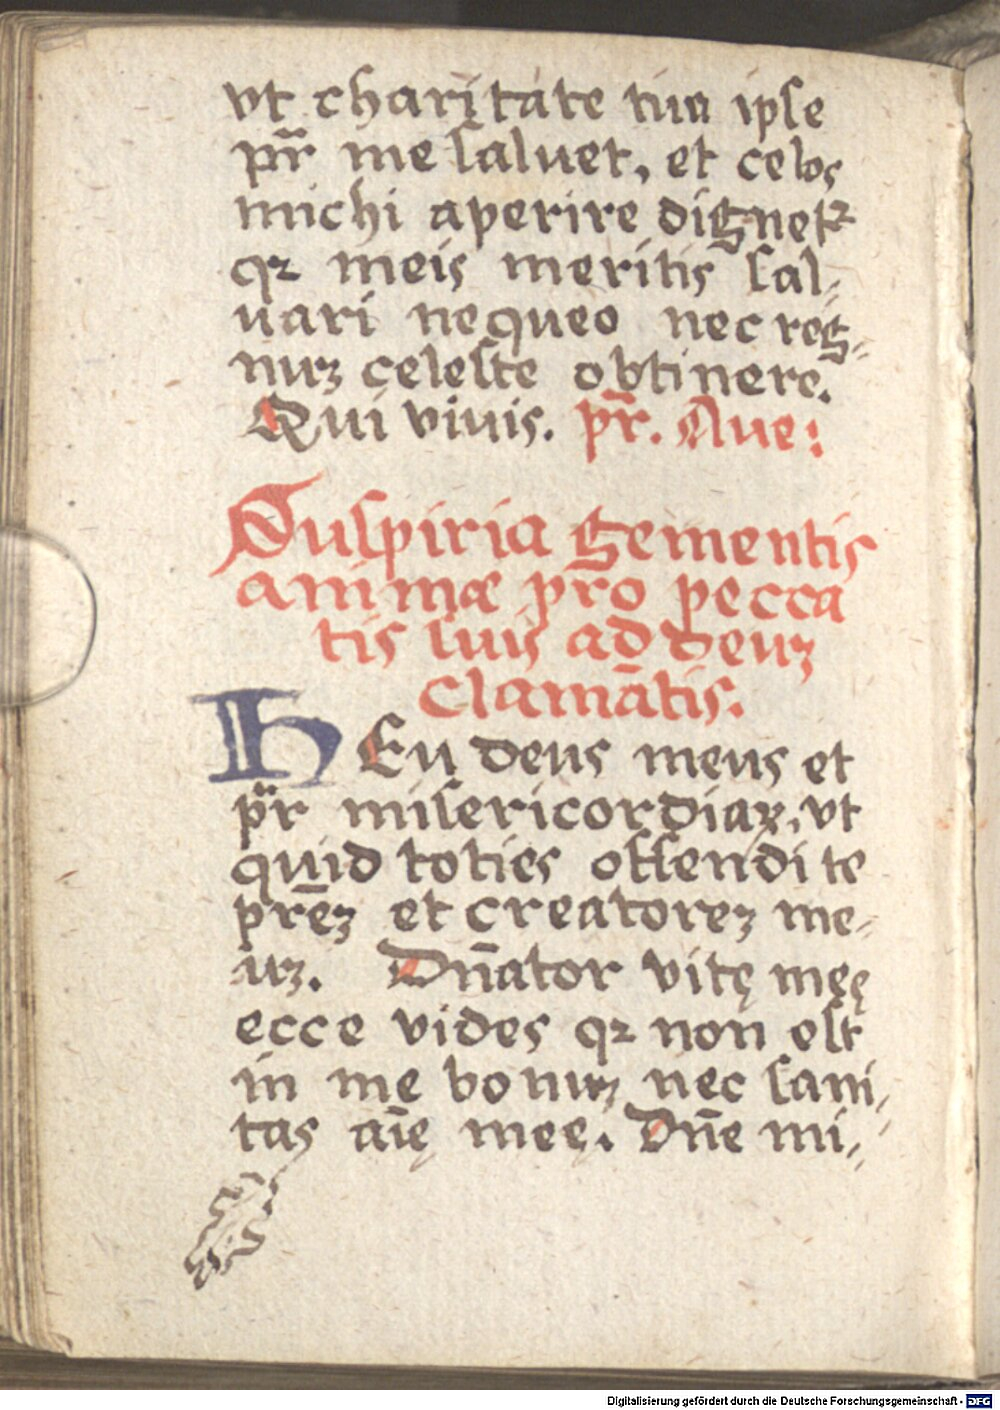 vt charitate tua ipse
pr̃ me saluet, et celos
michi aperire dignetꝛ
qꝛ meis meritis sal⸗
uari nequeo nec reg⸗
nuꝫ celeste obtinere.
Qui viuis. pr̃. Aue:
Suspiria gementis
animæ pro pecca
tis suis ad deuꝫ
clamãtis.
HEu deus meus et
pr̃ misericordiaꝝ, vt
quid toties offendi te
prẽꝫ et creatoreꝫ me⸗
uꝫ. Dñator vitę męę
ecce vides qꝛ non est
in me bonuꝫ nec sani⸗
tas aĩę meę. Dñe mi⸗
Digitalisierung gefördert durch die Deutsche Forschungsgemeinschaft - DFG